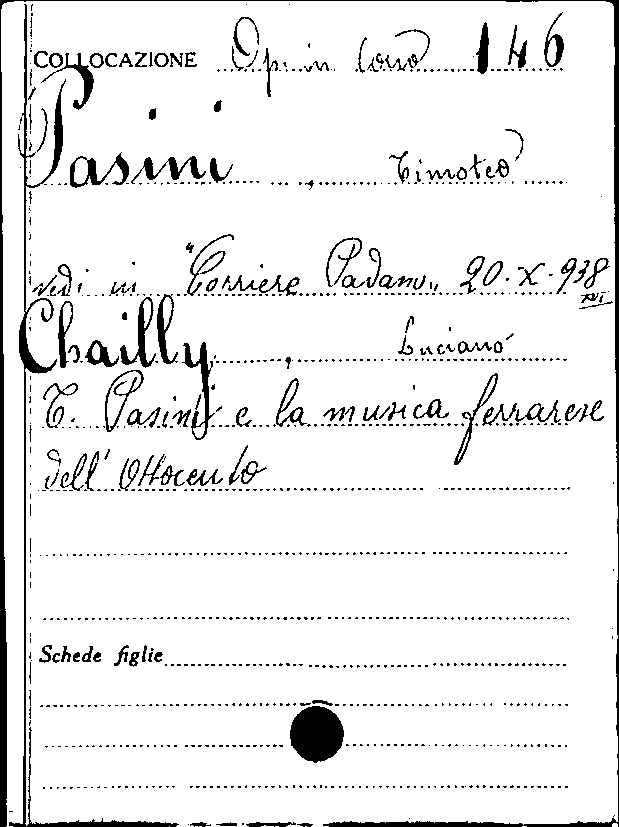 COLLOCAZIONE Op. in Corso 146
Pasini, Timoteo
vedi in "Corriere Padano" 20-X-938
XVI
Chailly, Luciano
T. Pasini e la musica ferrarese
dell'Ottocento
Schede figlie